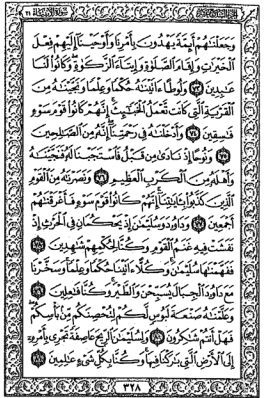 سورة الأنبياء ٢١
وَجَعَلْنَٰهُمْ أَئِمَّةً يَهْدُونَ بِأَمْرِنَا وَأَوْحَيْنَآ إِلَيْهِمْ فِعْلَ
ٱلْخَيْرَٰتِ وَإِقَامَ ٱلصَّلَوٰةِ وَإِيتَآءَ ٱلزَّكَوٰةِ وَكَانُوا۟ لَنَا
عَٰبِدِينَ ٧٣ وَلُوطًا ءَاتَيْنَٰهُ حُكْمًا وَعِلْمًا وَنَجَّيْنَٰهُ مِنَ
ٱلْقَرْيَةِ ٱلَّتِى كَانَت تَّعْمَلُ ٱلْخَبَٰٓئِثَ إِنَّهُمْ كَانُوا۟ قَوْمَ سَوْءٍ
فَٰسِقِينَ ٧٤ وَأَدْخَلْنَٰهُ فِى رَحْمَتِنَآ إِنَّهُۥ مِنَ ٱلصَّٰلِحِينَ
٧٥ وَنُوحًا إِذْ نَادَىٰ مِن قَبْلُ فَٱسْتَجَبْنَا لَهُۥ فَنَجَّيْنَٰهُ
وَأَهْلَهُۥ مِنَ ٱلْكَرْبِ ٱلْعَظِيمِ ٧٦ وَنَصَرْنَٰهُ مِنَ ٱلْقَوْمِ
ٱلَّذِينَ كَذَّبُوا۟ بِـَٔايَٰتِنَآ إِنَّهُمْ كَانُوا۟ قَوْمَ سَوْءٍ فَأَغْرَقْنَٰهُمْ
أَجْمَعِينَ ٧٧ وَدَاوُۥدَ وَسُلَيْمَٰنَ إِذْ يَحْكُمَانِ فِى ٱلْحَرْثِ إِذْ
نَفَشَتْ فِيهِ غَنَمُ ٱلْقَوْمِ وَكُنَّا لِحُكْمِهِمْ شَٰهِدِينَ ٧٨
فَفَهَّمْنَٰهَا سُلَيْمَٰنَ وَكُلًّا ءَاتَيْنَا حُكْمًا وَعِلْمًا وَسَخَّرْنَا
مَعَ دَاوُۥدَ ٱلْجِبَالَ يُسَبِّحْنَ وَٱلطَّيْرَ وَكُنَّا فَٰعِلِينَ ٧٩
وَعَلَّمْنَٰهُ صَنْعَةَ لَبُوسٍ لَّكُمْ لِتُحْصِنَكُم مِّنۢ بَأْسِكُمْ
فَهَلْ أَنتُمْ شَٰكِرُونَ ٨٠ وَلِسُلَيْمَٰنَ ٱلرِّيحَ عَاصِفَةً تَجْرِى بِأَمْرِهِۦٓ
إِلَى ٱلْأَرْضِ ٱلَّتِى بَٰرَكْنَا فِيهَا وَكُنَّا بِكُلِّ شَىْءٍ عَٰلِمِينَ ٨١
٣٢٨